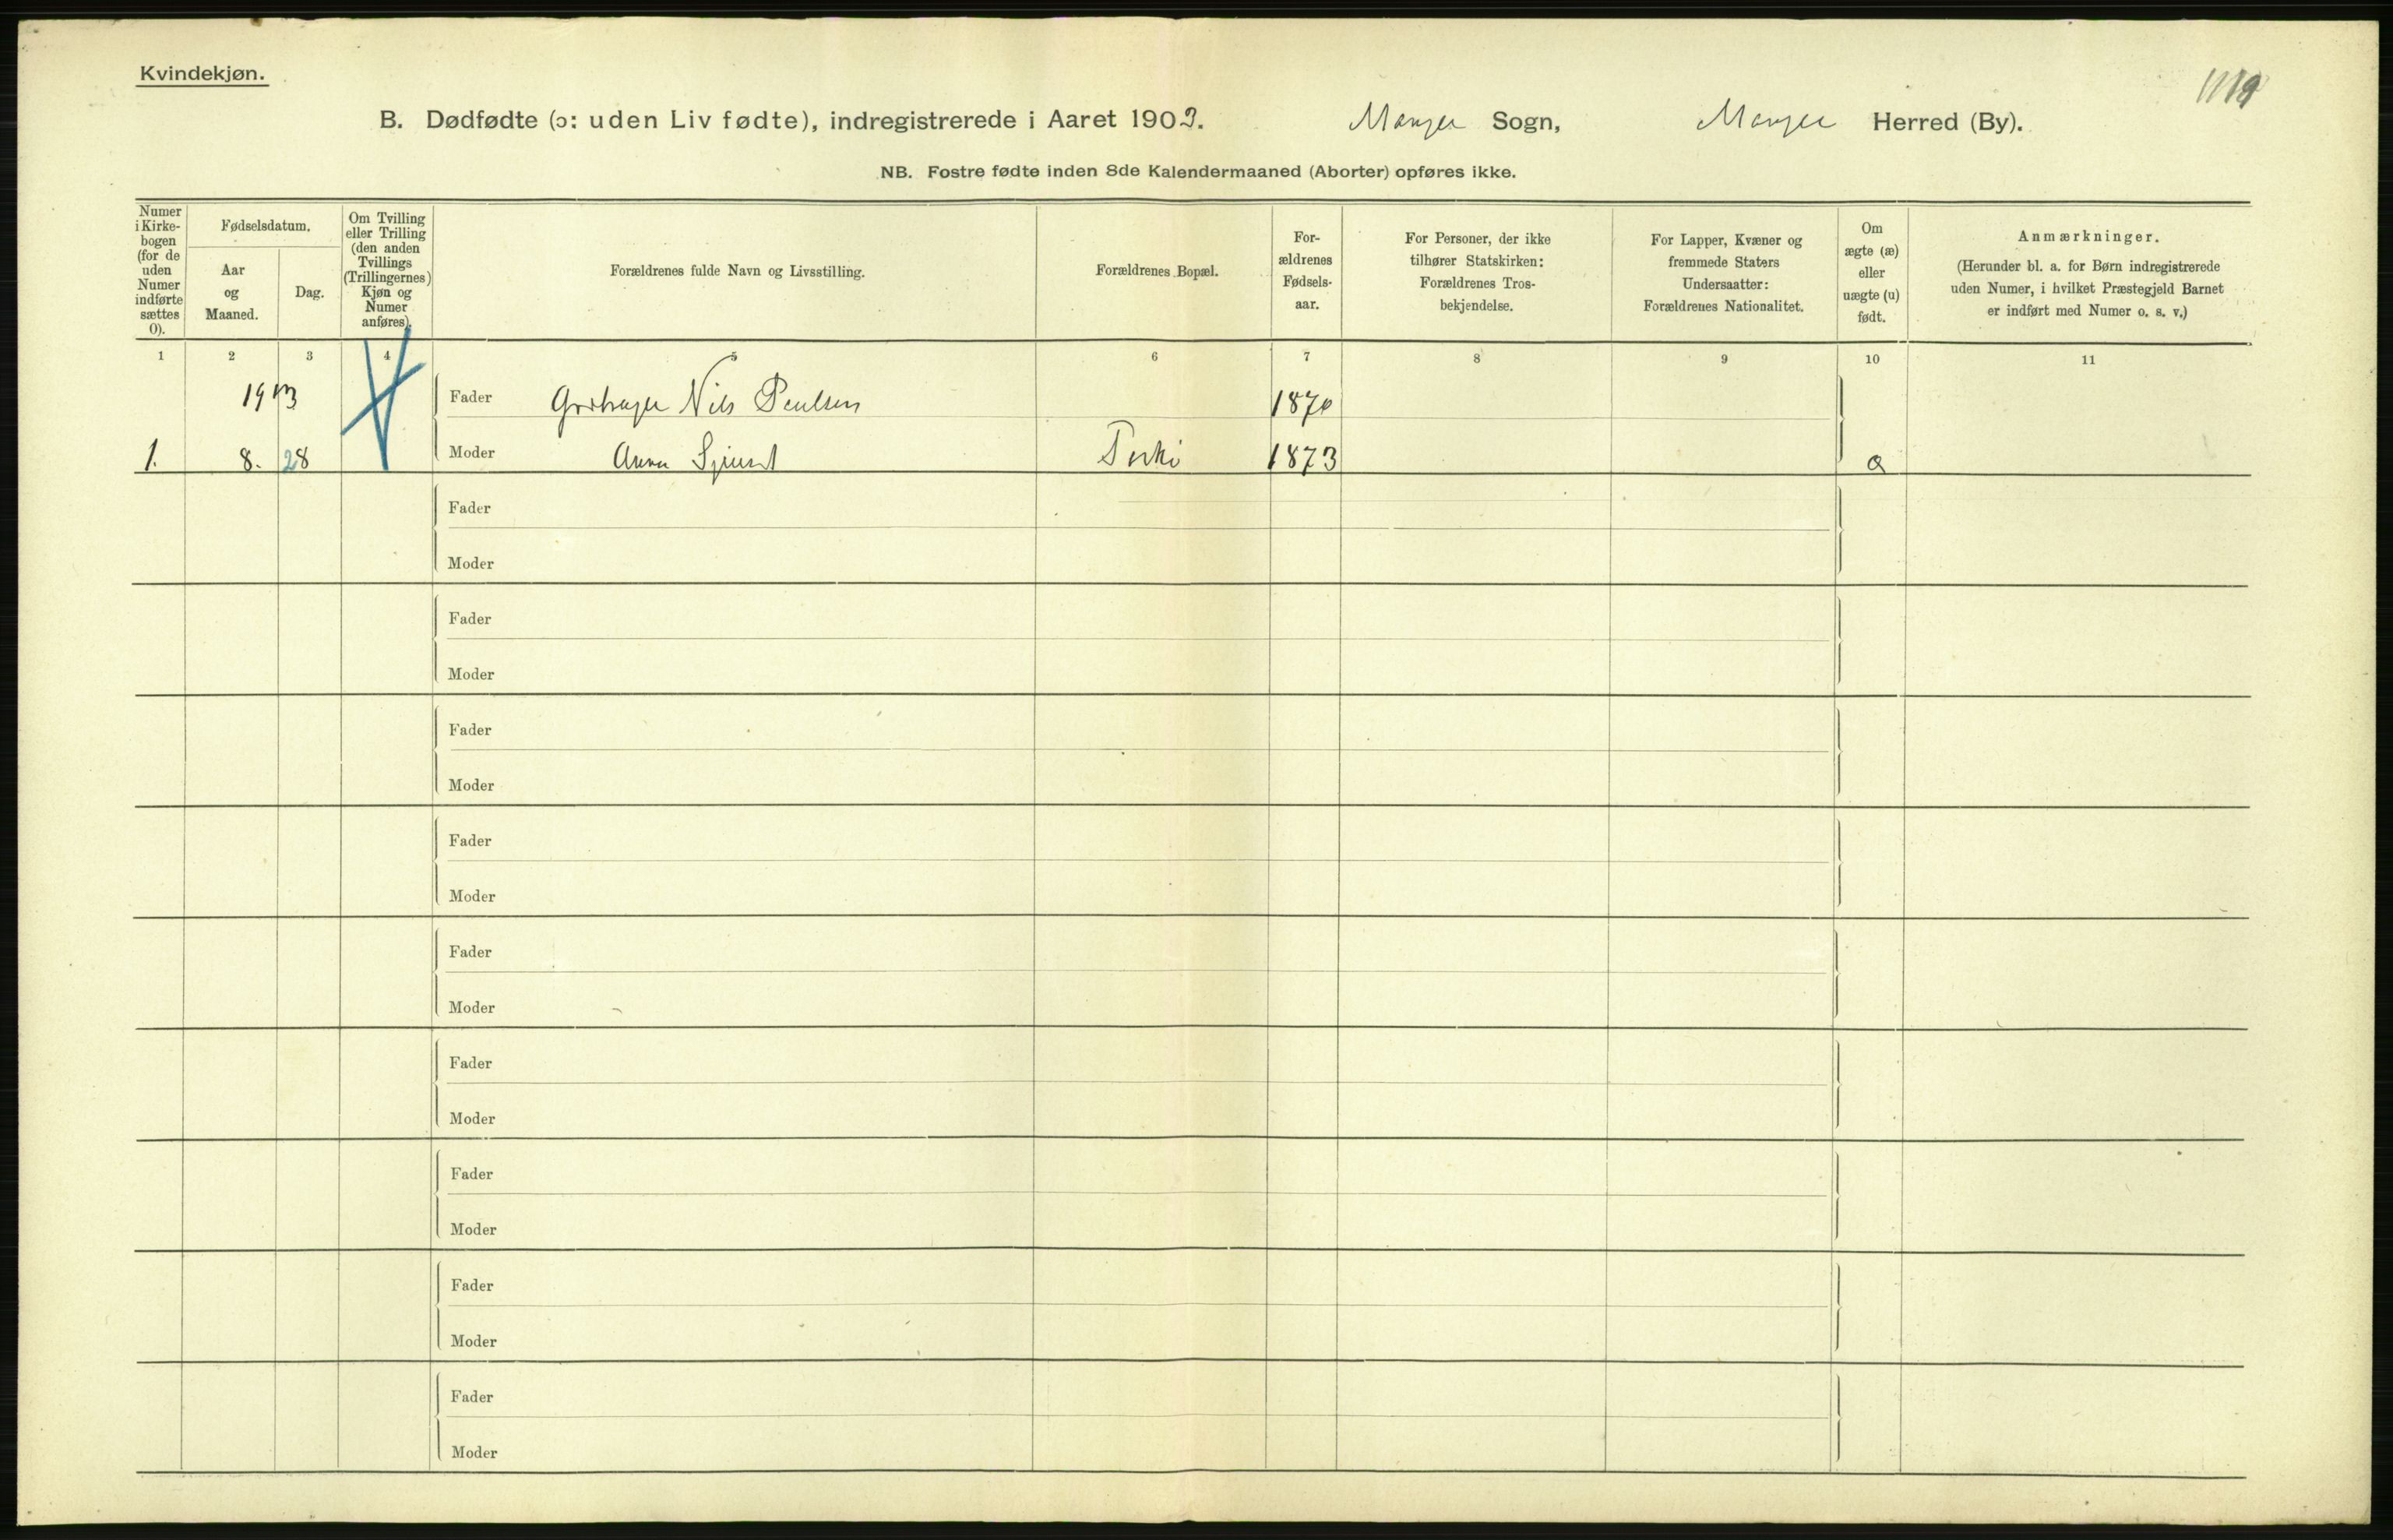 Kvindekjøn.
1119
B. Dødfødte (ɔ: uden Liv fødte), indregistrerede i Aaret 1903. Manger Sogn, Manger Herred (By).
NB. Fostre fødte inden 8de Kalendermaaned (Aborter) opføres ikke.
Numer
i Kirke-
bogen
(for de
uden
Numer
indførte
sættes
0).
Fødselsdatum.
Aar
og
Maaned.
Dag.
Om Tvilling
eller Trilling
(den anden
Tvillings
(Trillingernes)
Kjøn og
Numer
anføres).
Forældrenes fulde Navn og Livsstilling.
Forældrenes Bopæl.
For-
ældrenes
Fødsels-
aar.
For Personer, der ikke
tilhører Statskirken:
Forældrenes Tros-
bekjendelse.
For Lapper, Kvæner og
fremmede Staters
Undersaatter:
Forældrenes Nationalitet.
Om
ægte (æ)
eller
uægte (u)
født.
Anmærkninger.
(Herunder bl. a. for Børn indregistrerede
uden Numer, i hvilket Præstegjeld Barnet
er indført med Numer o. s. v.)
1 2 3 4 5 6 7 8 9 10 11
Fader Nils Paulsen 1870
1. 8. 28 Moder Anna 1873
Fader
Moder
Fader
Moder
Fader
Moder
Fader
Moder
Fader
Moder
Fader
Moder
Fader
Moder
Fader
Moder
Fader
Moder